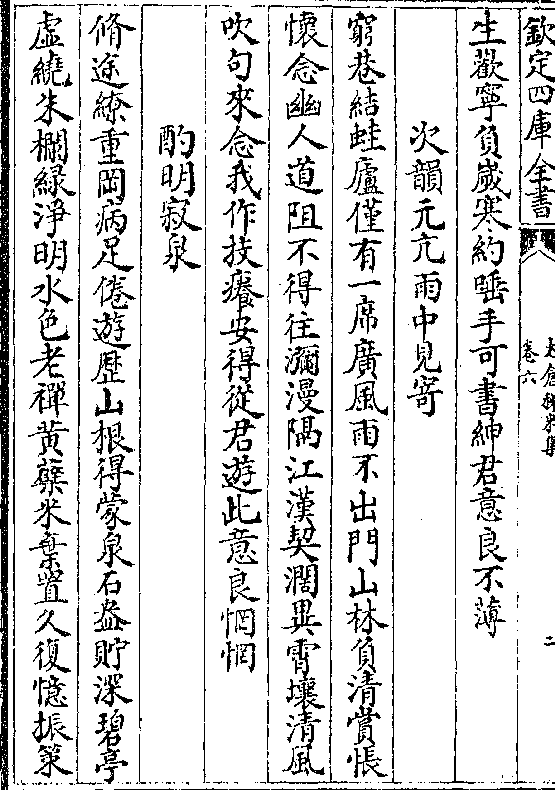 欽定四庫全書
太倉稊米集
卷六
二
生歡寧負歲寒約唾手可書紳君意良不薄
次韻元亢雨中見寄
窮巷結蛙廬僅有一席廣風雨不出門山林負清賞悵
懷念幽人道阻不得往瀰漫隔江漢契濶異霄壤清風
吹句來念我作技癢安得從君遊此意良惘惘
酌明寂泉
脩途繚重岡病足倦遊歴山根得蒙泉石盎貯深碧亭
虚繞朱欄緑淨明水色老禪黄糵米棄置久復憶振策